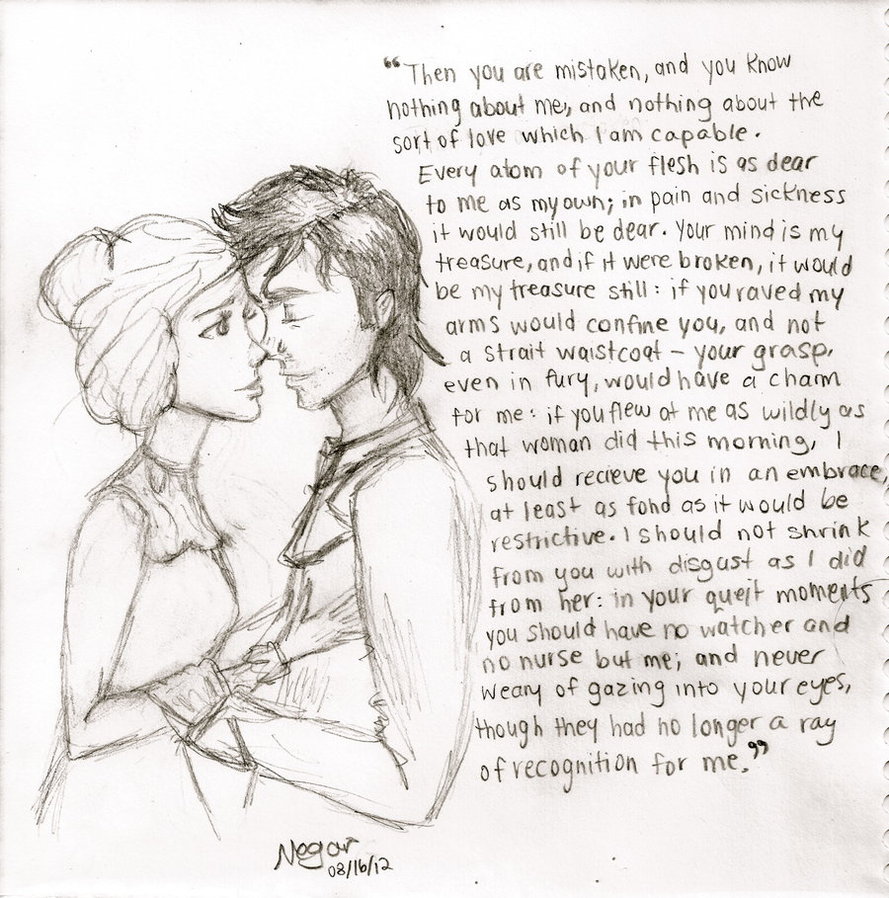 “Then you are mistaken, and you know
nothing about me, and nothing about the
sort of love which I am capable.
Every atom of your flesh is as dear
to me as my own; in pain and sickness
it would still be dear. Your mind is my
treasure, and if it were broken, it would
be my treasure still: if you raved my
arms would confine you, and not
a strait waistcoat - your grasp,
even in fury, would have a charm
for me: if you flew at me as wildly as
that woman did this morning, I
should recieve you in an embrace,
at least as fond as it would be
restrictive. I should not shrink
from you with disgust as I did
from her: in your queit moments
you should have no watcher and
no nurse but me; and never
weary of gazing into your eyes,
though they had no longer a ray
of recognition for me.”
Negar
08/16/12